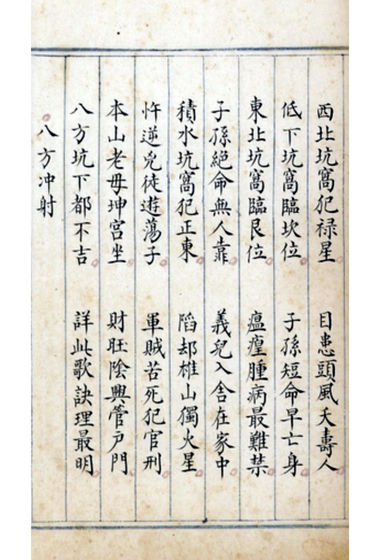 西北坑窩犯禄星　目患頭風夭壽人
低下坑窩臨坎位　子孫短命早亡身
東北坑窩臨艮位　瘟瘽腫病最難禁
子孫絕命無人靠　義兒入舍在家中
積水坑窩犯正東　滔却雄山獨火星
忤逆兇徒遊蕩子　軍賊苦死犯官刑
本山老母坤宮坐　財旺陰興管戶門
八方坑下都不吉　詳此歌訣理最明
八方冲射